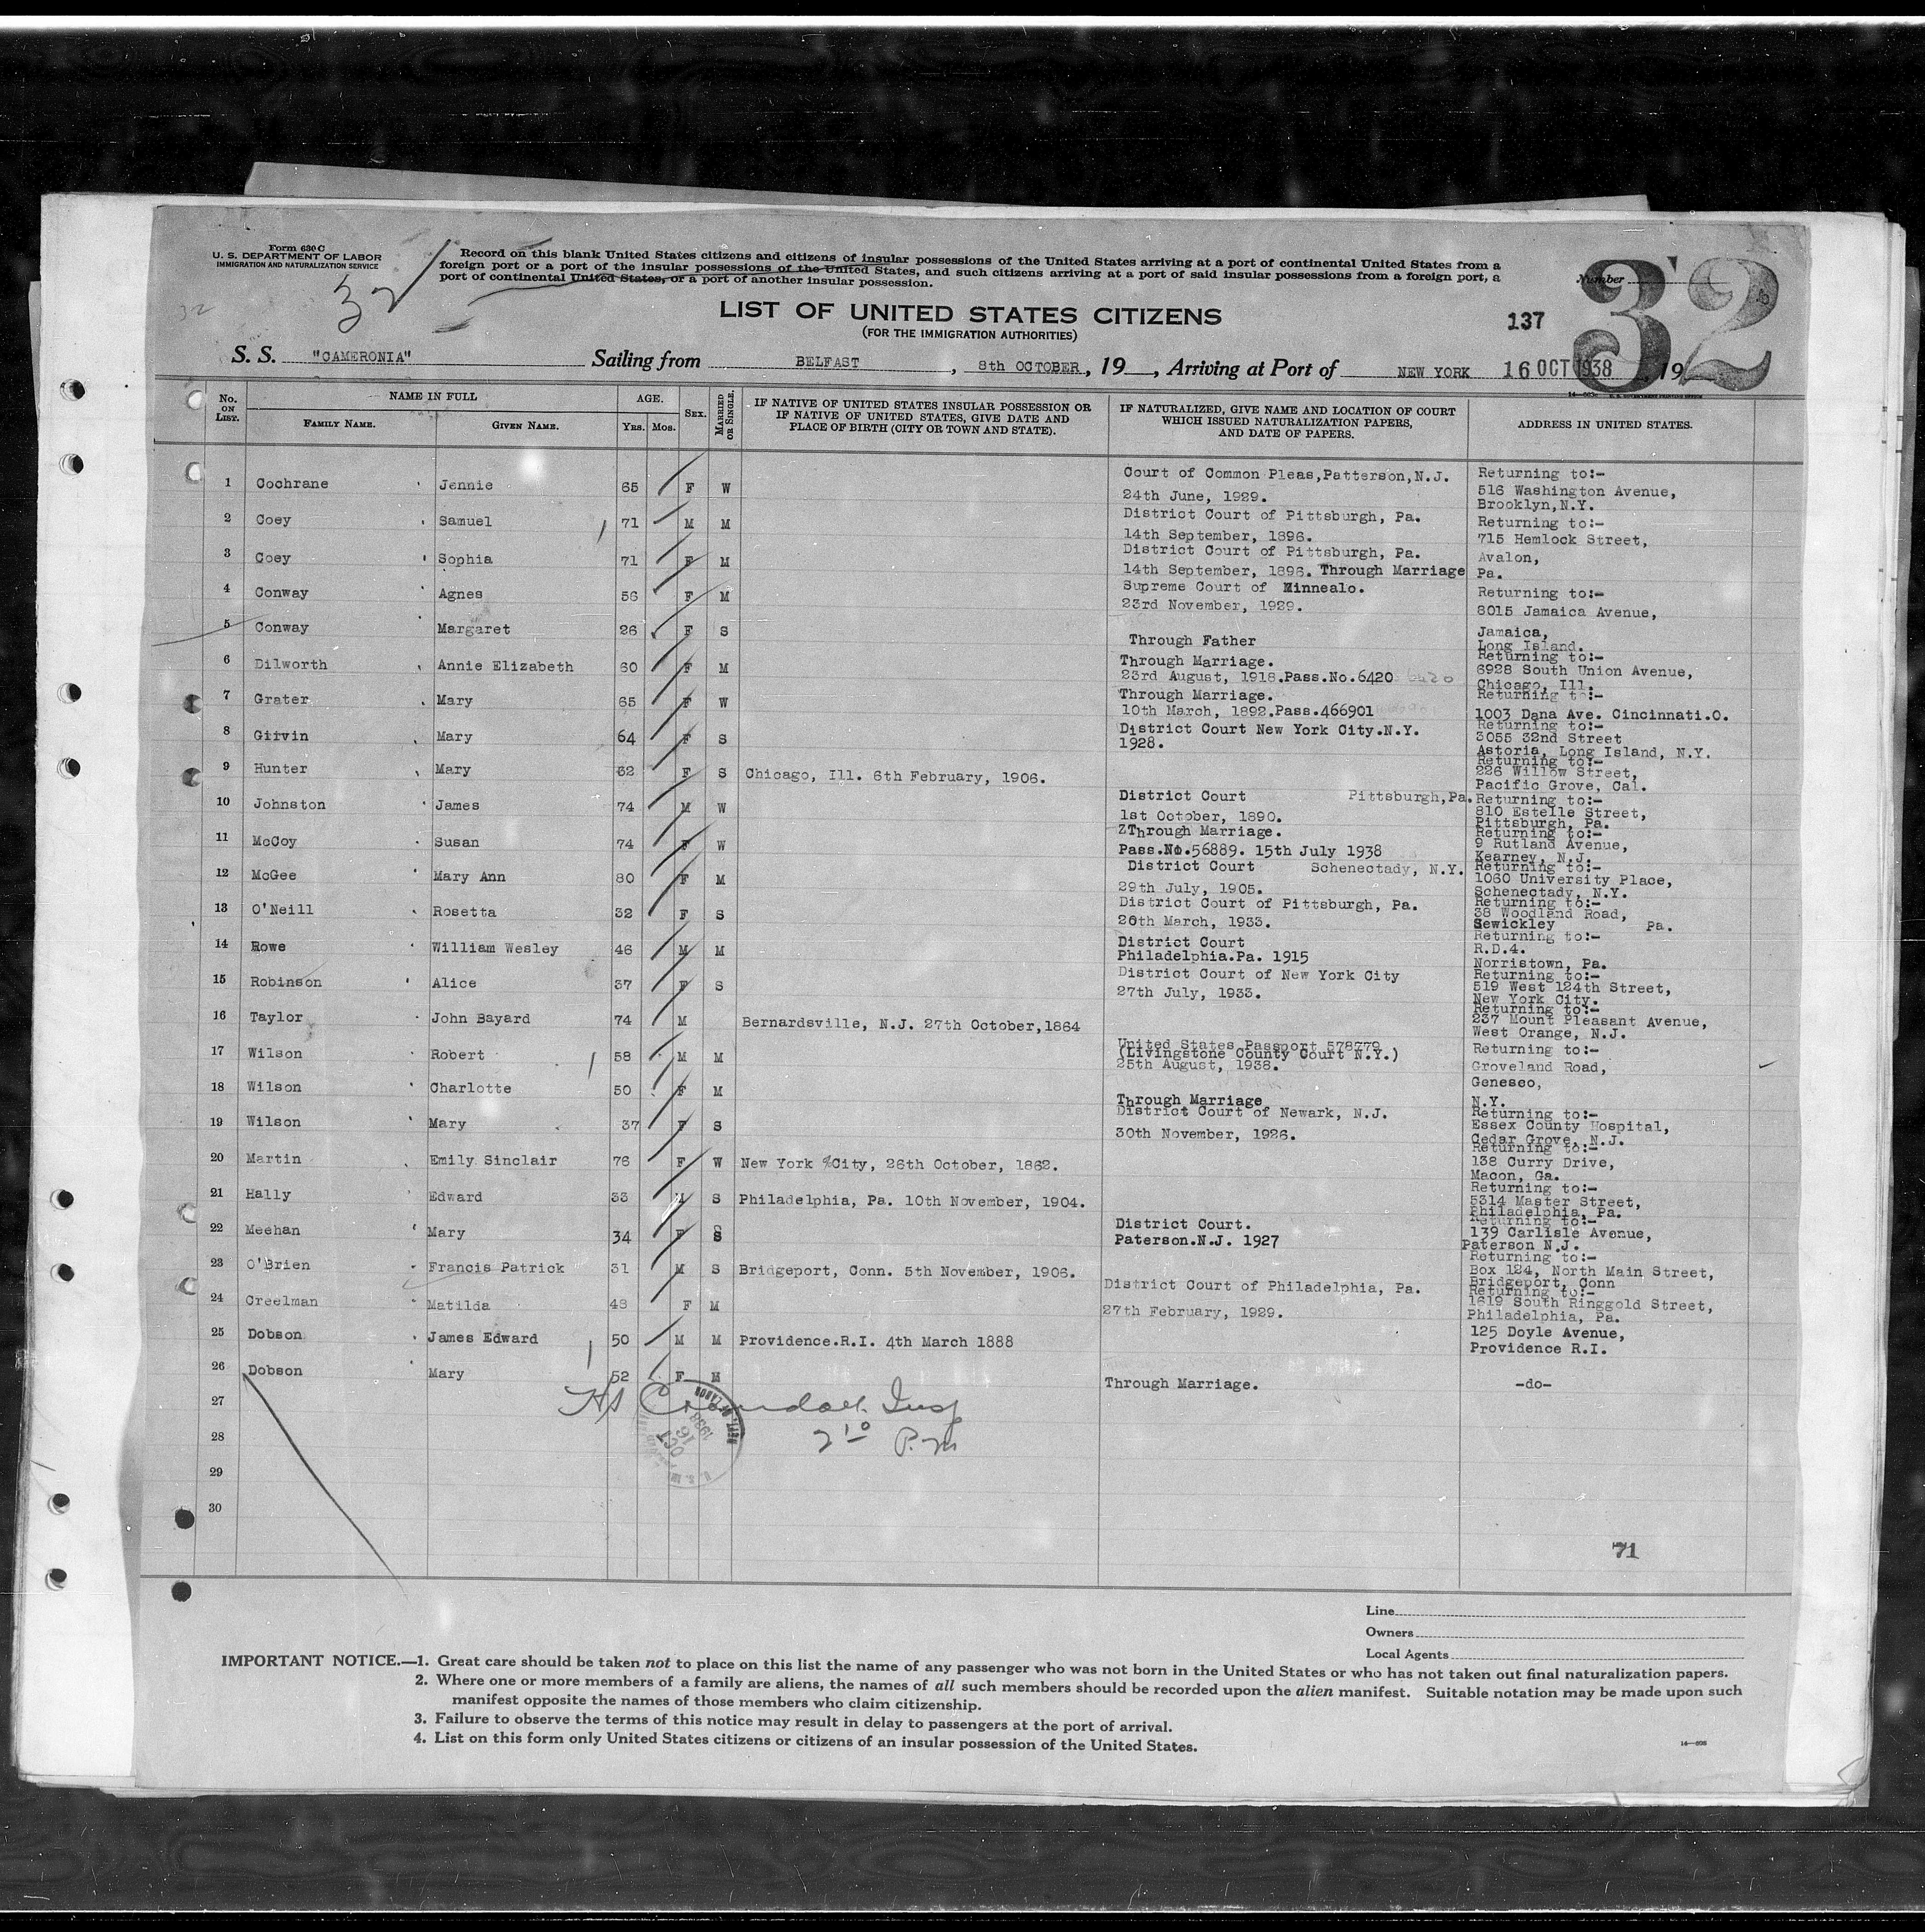 Form 630 C
U. S. DEPARTMENT OF LABOR
IMMIGRATION AND NATURALIZATION SERVICE
32
32
Record on this blank United States citizens and citizens of insular possessions of the United States arriving at a port of continental United States from a
foreign port or a port of the insular possessions of the United States, and such citizens arriving at a port of said insular possessions from a foreign port, a
port of continental United States, or a port of another insular possession.
Number
32
LIST OF UNITED STATES CITIZENS
(FOR THE IMMIGRATION AUTHORITIES)
137
S. S. "CAMERONIA" Sailing from BELFAST, 8th OCTOBER, 19__, Arriving at Port of NEW YORK 16 OCT 1938, 19
No. ON LIST. NAME IN FULL AGE. SEX. MARRIED OR SINGLE. IF NATIVE OF UNITED STATES INSULAR POSSESSION OR IF NATIVE OF UNITED STATES, GIVE DATE AND PLACE OF BIRTH (CITY OR TOWN AND STATE). IF NATURALIZED, GIVE NAME AND LOCATION OF COURT WHICH ISSUED NATURALIZATION PAPERS, AND DATE OF PAPERS. ADDRESS IN UNITED STATES.
FAMILY NAME. GIVEN NAME. YRS. MOS.
1 Cochrane Jennie 65 F W Court of Common Pleas,Patterson,N.J. 24th June, 1929. Returning to:- 516 Washington Avenue, Brooklyn,N.Y.
2 Coey Samuel 71 M M District Court of Pittsburgh, Pa. 14th September, 1896. Returning to:- 715 Hemlock Street,
3 Coey Sophia 71 F M District Court of Pittsburgh, Pa. 14th September, 1896. Through Marriage Avalon, Pa.
4 Conway Agnes 56 F M Supreme Court of Minnealo. 23rd November, 1929. Returning to:- 8015 Jamaica Avenue,
5 Conway Margaret 26 F S Through Father Jamaica, Long Island.
6 Dilworth Annie Elizabeth 60 F M Through Marriage. 23rd August, 1918.Pass.No.6420 6420 Returning to:- 6928 South Union Avenue, Chicago, Ill.
7 Grater Mary 65 F W Through Marriage. 10th March, 1892.Pass.466901 Returning to:- 1003 Dana Ave. Cincinnati.O.
8 Girvin Mary 64 F S District Court New York City.N.Y. 1928. Returning to:- 3055 32nd Street Astoria, Long Island, N.Y.
9 Hunter Mary 32 F S Chicago, Ill. 6th February, 1906. Returning to:- 226 Willow Street, Pacific Grove, Cal.
10 Johnston James 74 M W District Court Pittsburgh,Pa. 1st October, 1890. Returning to:- 810 Estelle Street, Pittsburgh, Pa.
11 McCoy Susan 74 F W ZThrough Marriage. Pass.No.56889. 15th July 1938 Returning to:- 9 Rutland Avenue, Kearney, N.J.
12 McGee Mary Ann 80 F M District Court Schenectady, N.Y. 29th July, 1905. Returning to:- 1060 University Place, Schenectady, N.Y.
13 O'Neill Rosetta 32 F S District Court of Pittsburgh, Pa. 20th March, 1933. Returning to:- 38 Woodland Road, Sewickley Pa.
14 Rowe William Wesley 46 M M District Court Philadelphia.Pa. 1915 Returning to:- R.D.4. Norristown, Pa.
15 Robinson Alice 37 F S District Court of New York City 27th July, 1933. Returning to:- 519 West 124th Street, New York City.
16 Taylor John Bayard 74 M Bernardsville, N.J. 27th October,1864 Returning to:- 237 Mount Pleasant Avenue, West Orange, N.J.
17 Wilson Robert 58 M M United States Passport 578779 (Livingstone County Court N.Y.) 25th August, 1938. Returning to:- Groveland Road,
18 Wilson Charlotte 50 F M Through Marriage Geneseo, N.Y.
19 Wilson Mary 37 F S District Court of Newark, N.J. 30th November, 1926. Returning to:- Essex County Hospital, Cedar Grove, N.J.
20 Martin Emily Sinclair 76 F W New York City, 26th October, 1862. Returning to:- 138 Curry Drive, Macon, Ga.
21 Hally Edward 33 M S Philadelphia, Pa. 10th November, 1904. Returning to:- 5314 Master Street, Philadelphia, Pa.
22 Meehan Mary 34 F S District Court. Paterson.N.J. 1927 Returning to:- 139 Carlisle Avenue, Paterson N.J.
23 O'Brien Francis Patrick 31 M S Bridgeport, Conn. 5th November, 1906. Returning to:- Box 124, North Main Street, Bridgeport, Conn
24 Creelman Matilda 48 F M District Court of Philadelphia, Pa. 27th February, 1929. Returning to:- 1619 South Ringgold Street, Philadelphia, Pa.
25 Dobson James Edward 50 M M Providence.R.I. 4th March 1888 125 Doyle Avenue, Providence R.I.
26 Dobson Mary 52 F M Through Marriage. -do-
27
28
29
30
Insp
2 10 P.M
OCT 16 1938
71
Line
Owners
Local Agents
IMPORTANT NOTICE.—1. Great care should be taken not to place on this list the name of any passenger who was not born in the United States or who has not taken out final naturalization papers.
2. Where one or more members of a family are aliens, the names of all such members should be recorded upon the alien manifest. Suitable notation may be made upon such
manifest opposite the names of those members who claim citizenship.
3. Failure to observe the terms of this notice may result in delay to passengers at the port of arrival.
4. List on this form only United States citizens or citizens of an insular possession of the United States.